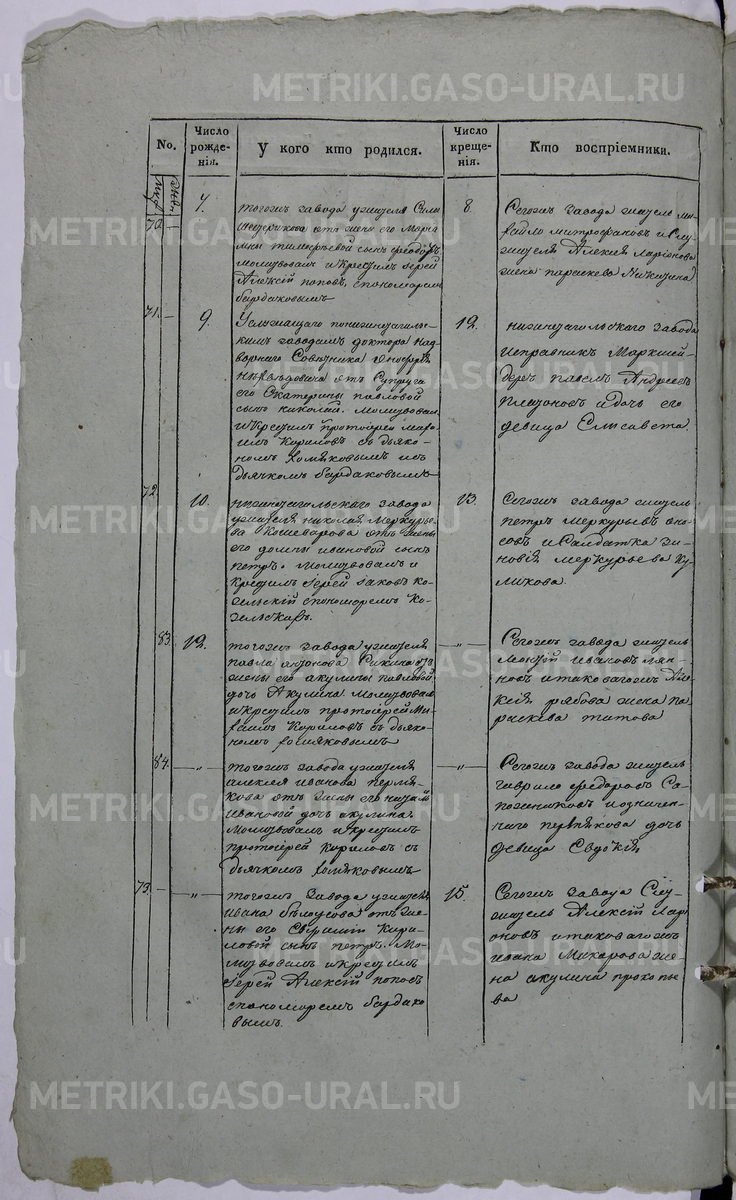 METRIKI.GASO-URAL.RU
No.
Число рожде-нія.
У кого кто родился.
Число креще-нія.
Кто воспріемники.
муж. жен.
70.
7.
тогожъ завода у жителя Силы
отъ жены его Марѳы
сынъ Ѳеодоръ
молитвовалъ и крестилъ Іерей
Алексій Поповъ, съ пономаремъ
Бардаковымъ
8.
Сегожъ завода житель Ми-
хайло Митрофановъ и Слу-
жителя Алексія Ларіонова
жена Параскева Никитина
71.
9.
У служащаго по нижнетагиль-
скимъ заводамъ доктора над-
ворнаго Совѣтника
отъ Супруги
его Екатерины Павловой
сынъ Николай. Молитвовалъ
и крестилъ Протоіерей Миха-
илъ Кириловъ съ дьяко-
номъ Хомяковымъ и съ
дьячкомъ Бардаковымъ
12.
Нижнетагильскаго завода
Исправникъ Маркшей-
деръ Павелъ Андреевъ
Платоновъ и дочь его
девица Елисавета.
72.
10.
Нижнетагильскаго завода
у жителя Николая Меркурье-
ва Кошеварова отъ жены
его Домны Ивановой сынъ
Петръ. Молитвовалъ и
крестилъ Іерей Іаковъ Ко-
гельскій съ пономаремъ Ко-
гельскимъ.
13.
Сегожъ завода житель
Петръ Меркурьевъ
и Салдатка Зи-
новія Меркурьева Ку-
ликова.
83.
12.
тогожъ завода у жителя
Павла Антонова отъ
жены его Акулины Павловой
дочь Акулина молитвовалъ
и крестилъ Протоіерей Ми-
хаилъ Кириловъ съ дьяко-
номъ Хомяковымъ
— „ —
Сегожъ завода житель
Иванъ Лян-
новъ и таковагожъ Але-
ксія Рябова жена Па-
раскева Титова
84.
— „ —
тогожъ завода у жителя
Алексея Иванова Пермя-
кова отъ жены его
Ивановой дочь Акулина.
Молитвовалъ и крестилъ
Протоіерей Кириловъ съ
дьячкомъ Хомяковымъ
— „ —
Сегожъ завода житель
Гаврило Федоровъ Са-
пожниковъ и означен-
наго Пермякова дочь
девица Евдокія
73.
— „ —
тогожъ завода у жителя
Ивана Белоусова отъ же-
ны его Кири-
ловой сынъ Петръ. Мо-
литвовалъ и крестилъ
Іерей Алексій Поповъ
съ пономаремъ Бардако-
вымъ.
15.
Сегожъ завода Слу-
житель Алексій Лари-
оновъ и таковагожъ
Ивана Макарова же-
на Акулина Прокопье-
ва